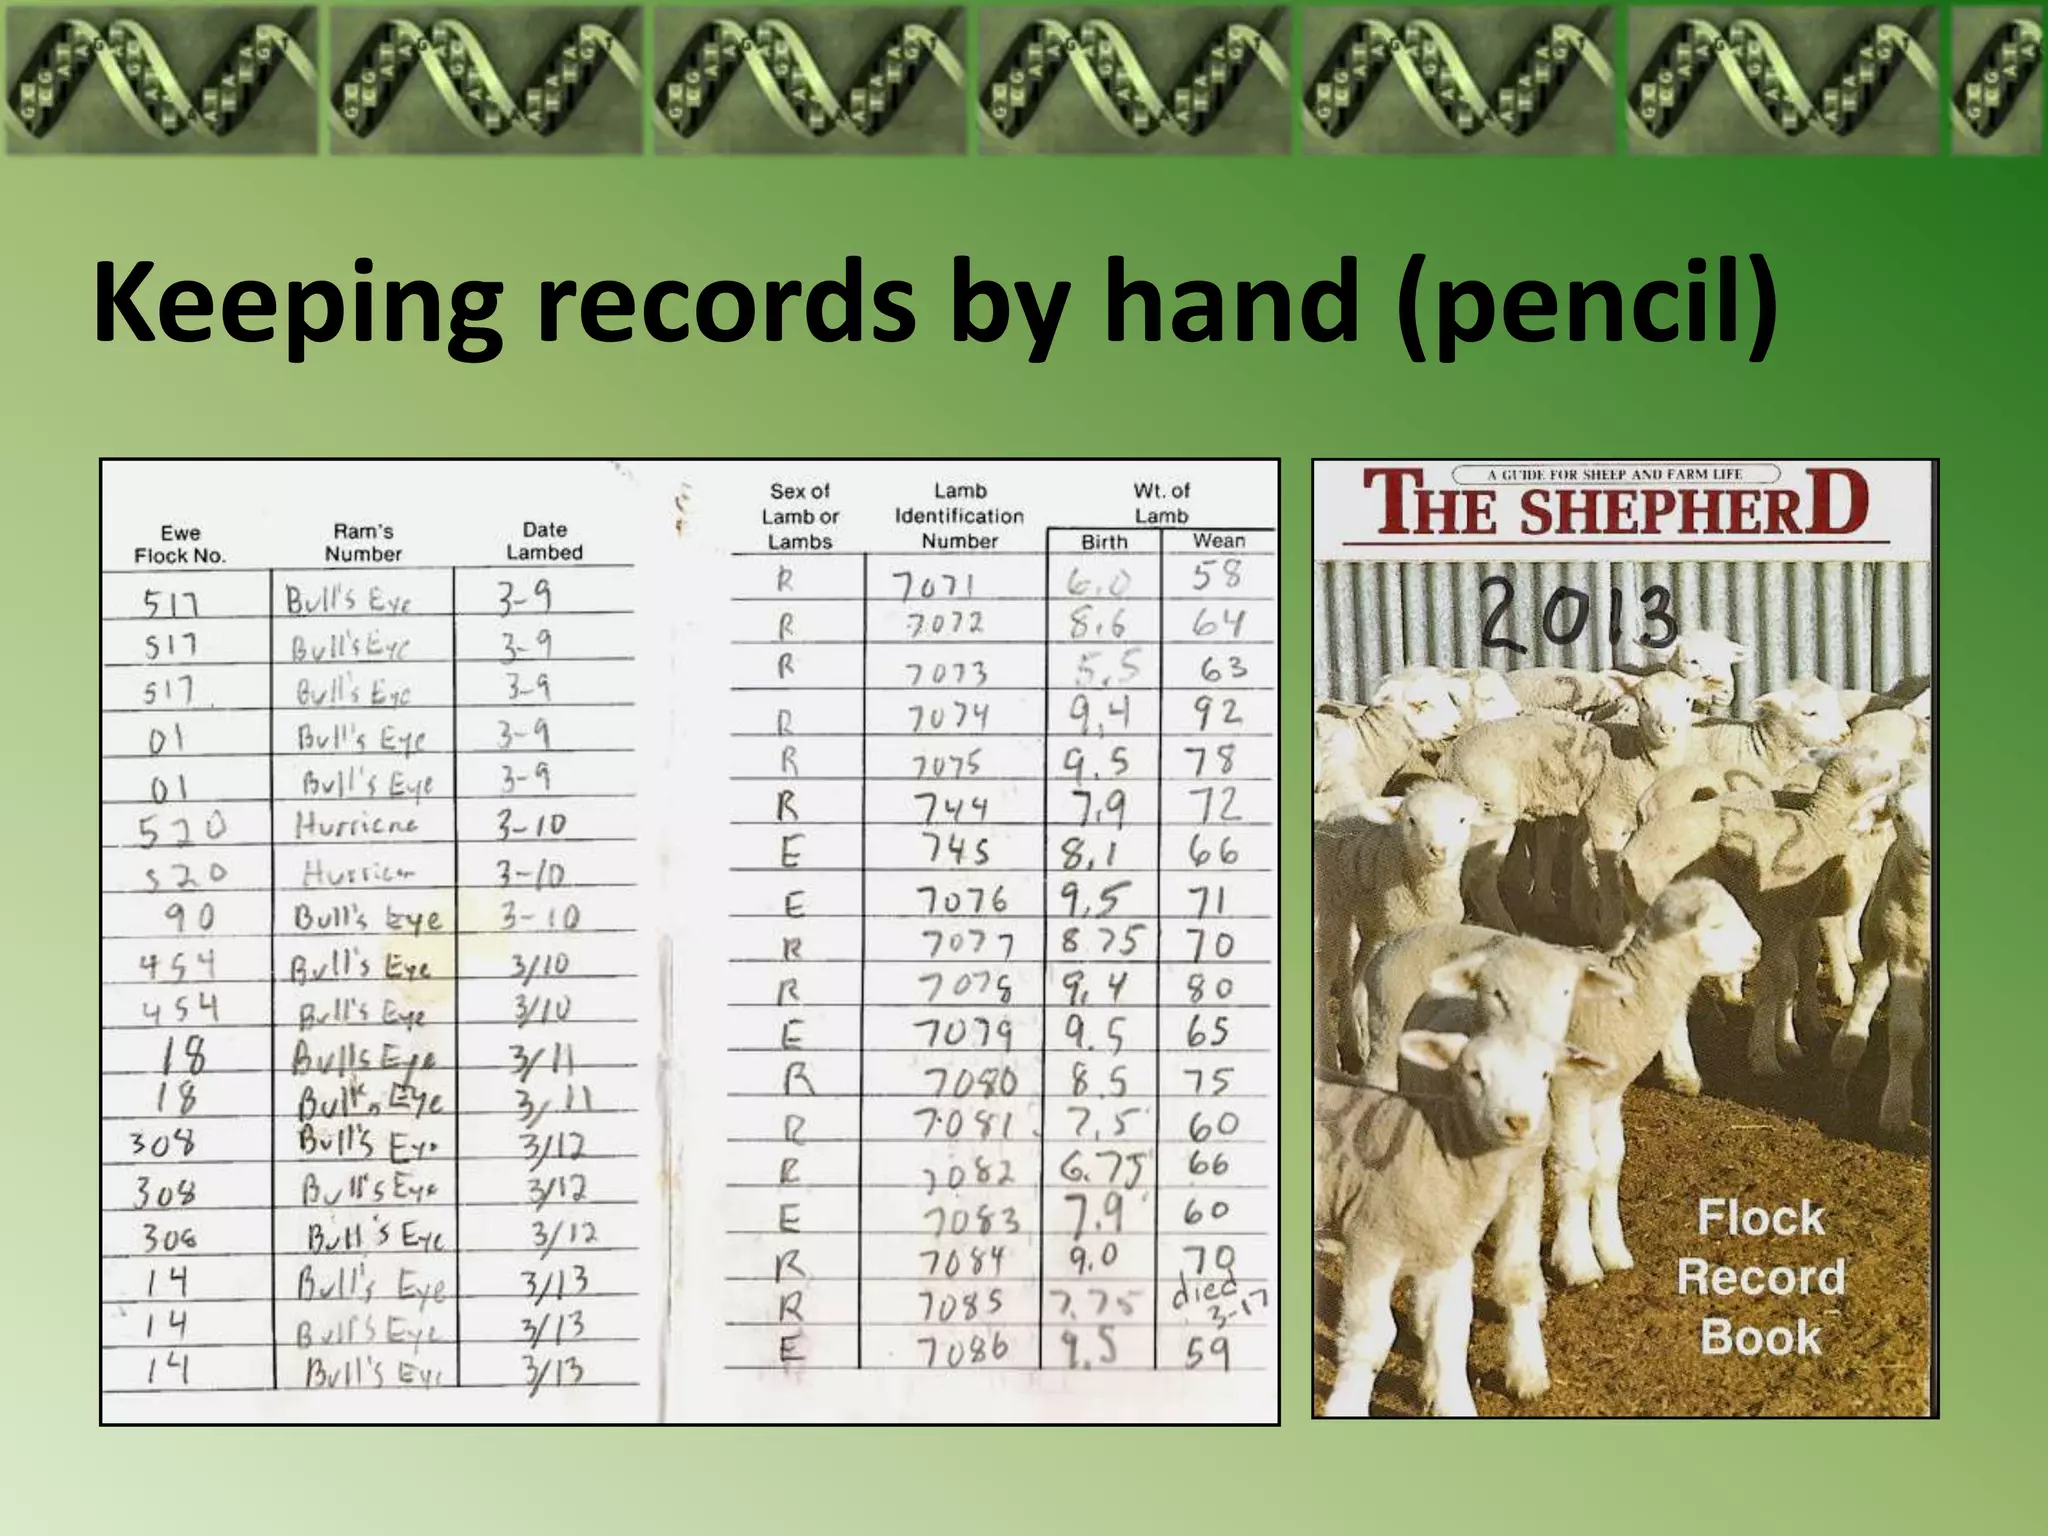 Keeping records by hand (pencil)
Ewe Flock No. Ram's Number Date Lambed Sex of Lamb or Lambs Lamb Identification Number Wt. of Lamb Birth Wean
517 Bull's Eye 3-9 R 7071 6.0 58
517 Bull's Eye 3-9 R 7072 8.6 64
517 Bull's Eye 3-9 R 7073 5.5 63
01 Bull's Eye 3-9 R 7074 9.4 92
01 Bull's Eye 3-9 R 7075 9.5 78
520 Hurricne 3-10 R 744 7.9 72
520 3-10 E 745 8.1 66
90 Bull's Eye 3-10 E 7076 9.5 71
454 Bull's Eye 3/10 R 7077 8 75 70
454 Bull's Eye 3/10 R 7078 9.4 80
18 Bulls Eye 3/11 E 7079 9.5 65
18 Bull's Eye 3/11 R 7080 8.5 75
308 Bull's Eye 3/12 R 7081 7.5 60
308 Bull's Eye 3/12 R 7082 6.75 66
308 Bull's Eye 3/12 E 7083 7.9 60
14 Bull's Eye 3/13 R 7084 9.0 70
14 Bull's Eye 3/13 R 7085 7.75 died 3-17
14 Bull's Eye 3/13 E 7086 9.5 59
A GUIDE FOR SHEEP AND FARM LIFE
THE SHEPHERD
2013
Flock
Record
Book